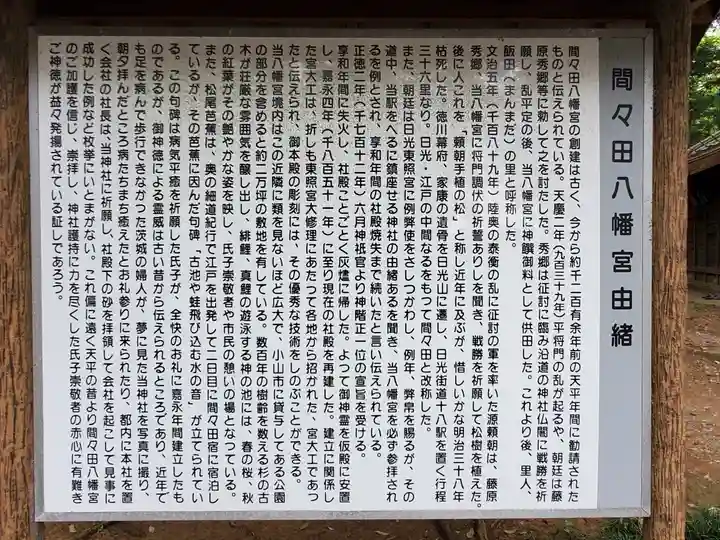 間々田八幡宮由緒
間々田八幡宮の創建は古く、今から約千二百有余年前の天平年間に勧請された
ものと伝えられている。天慶二年（九百三十九年）平将門の乱が起るや、朝廷は藤
原秀郷等に勅して之を討たした。秀郷は征討に臨み沿道の神社仏閣に戦勝を祈
願し、乱平定の後、当八幡宮に神饌御料として供田した。これより後、里人、
飯田（まんまだ）の里と呼称した。
文治五年（千百八十九年）陸奥の泰衡の乱に征討の軍を率いた源頼朝は、藤原
秀郷、当八幡宮に将門調伏の祈誓ありしを聞き、戦勝を祈願して松樹を植えた。
後に人これを「頼朝手植の松」と称し近年に及ぶが、惜しいかな明治三十八年
枯死した。徳川幕府、家康の遺骨を日光山に遷し、日光街道十八駅を置く行程
三十六里なり。日光・江戸の中間なるをもつて間々田と改称した。
また、朝廷は日光東照宮に例弊使をさしつかわし、例年、弊帛を賜るが、その
道中、当駅をへるに鎮座せる神社の由緒あるを聞き、当八幡宮を必ず参拝され
るを例とされ、享和年間の社殿焼失まで続いたと言い伝えられている。
正徳二年（千七百十二年）六月神祇官より神階正一位の宣旨を受ける。
享和年間に失火し、社殿ことごとく灰燼に帰した。よつて御神霊を仮殿に安置
し、嘉永四年（千八百五十一年）に至り現在の社殿を再建した。建立に関係し
た宮大工は、折しも東照宮大修理にあたつて各地から招かれた、宮大工であつ
たと伝えられ、御本殿の彫刻には、その優秀な技術をしのぶことができる。
当八幡宮境内はこの近隣に類を見ないほど広大で、小山市に貸与してある公園
の部分を含めると約二万坪の敷地を有している。数百年の樹齢を数える杉の古
木が荘厳な雰囲気を醸し出し、緋鯉、真鯉の遊泳する神の池には、春の桜、秋
の紅葉がその艶やかな姿を映し、氏子崇敬者や市民の憩いの場となつている。
また、松尾芭蕉は、奥の細道紀行で江戸を出発して二日目に間々田宿に宿泊し
ているが、その芭蕉に因んだ句碑、古池や蛙飛び込む水の音が立てられてい
る。この句碑は病気平癒を祈願した氏子が、全快のお礼に嘉永年間建立したも
のであるが、御神徳による霊威は古い昔から伝えられるところであり、近年で
も足を病んで歩行できなかつた茨城の婦人が、夢に見た当神社を写真に撮り、
朝夕拝んだところ病たちまち癒えたとお礼参りに来られたり、都内に本社を置
く会社の社長は、当神社に祈願し、社殿下の砂を拝領して会社を起こして見事に
成功した例など枚挙にいとまがない。これ偏に遠く天平の昔より間々田八幡宮
のご加護を信じ、崇拝し、神社護持に力を尽くした氏子崇敬者の赤心に有難き
ご神徳が益々発揚されている証しであろう。